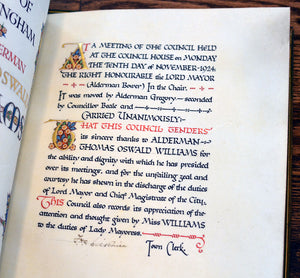 NGHAM
DERMAN
OSWALD
AT A MEETING OF THE COUNCIL HELD
AT THE COUNCIL HOUSE ON MONDAY
THE TENTH DAY OF NOVEMBER·1924
THE RIGHT HONOURABLE THE LORD MAYOR
(Alderman Bower) In the Chair.
It was moved by Alderman Gregory — seconded
by Councillor Beale and
CARRIED UNANIMOUSLY:—
THAT THIS COUNCIL TENDERS
its sincere thanks to ALDERMAN
THOMAS OSWALD WILLIAMS for
the ability and dignity with which he has presided
over its meetings, and for the unfailing zeal and
courtesy he has shewn in the discharge of the duties
of Lord Mayor and Chief Magistrate of the City,
THIS Council also records its appreciation of the
attention and thought given by Miss WILLIAMS
to the duties of Lady Mayoress.
Town Clerk